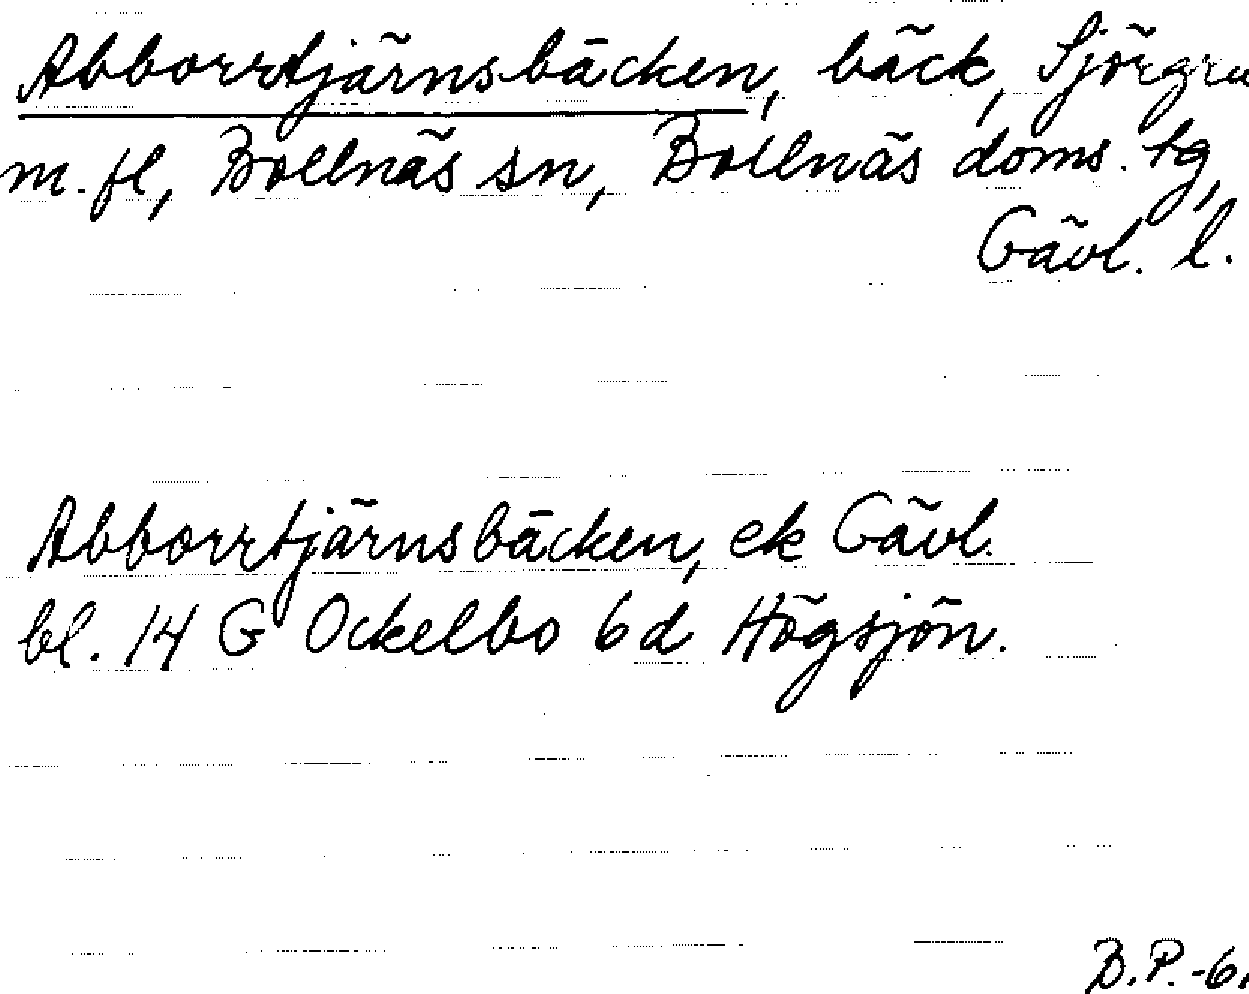 Abborrtjärnsbäcken, bäck, Sjörgru
m. fl, Bollnäs sn, Bollnäs doms. tg,
Gävl. l.
Abborrtjärnsbäcken, ek Gävl.
bl. 14 G Ockelbo 6d Högsjön.
B.P.-6